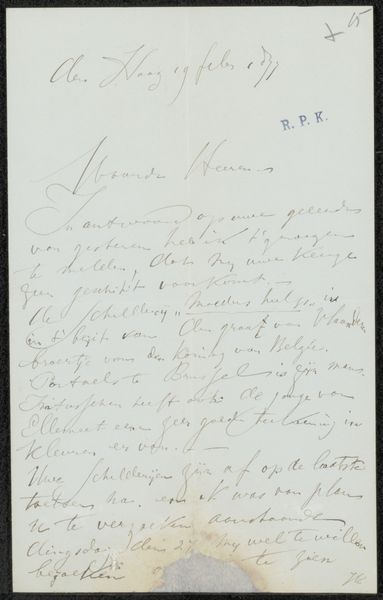 15
den Haag 19 febr 1877
R. P. K.
Waarde Heeren
In antwoord op uwe geëerde
van gisteren heb ik 't genoegen
te melden, dat mij uwe keuze
zeer geschikt voorkomt
de schilderij "Moeders hulp" is
in 't bezit van den graaf van Vlaanderen
broertje van den koning van Belgie.
Portaels te Brussel is zijn man.
Intusschen heeft ook de jonge van
Ellemeet een zeer goede teekening in
kleuren er van.
Uwe schilderijen zijn af op de laatste
toetsen na. en ik was van plan
u te verzoeken aanstaande
dingsdag den 27 mij wel te willen
bezoeken te zien